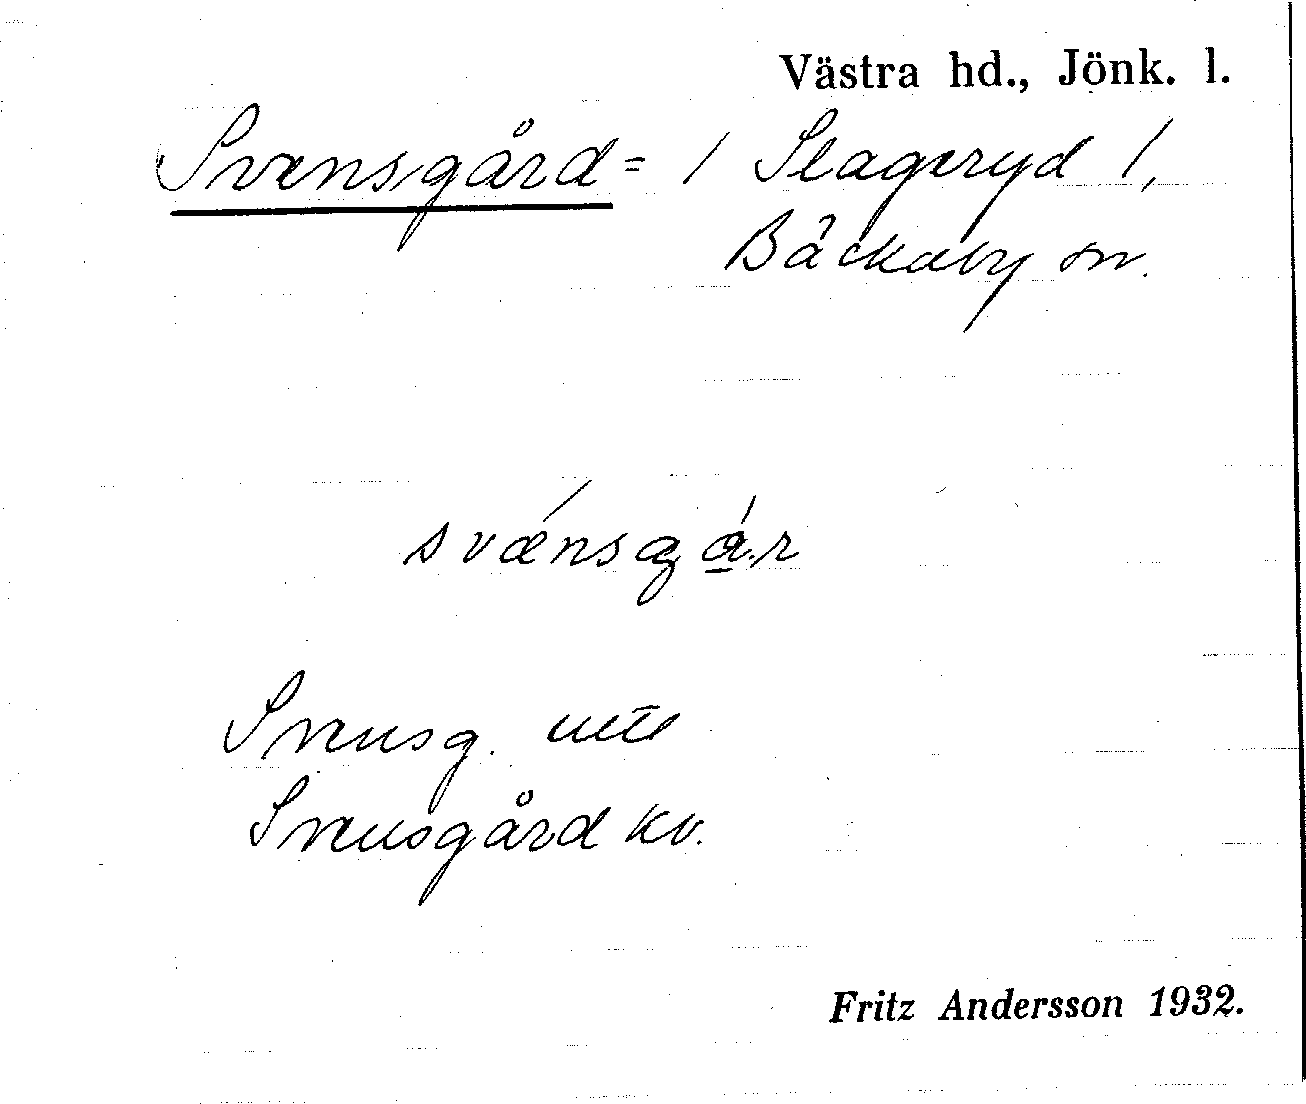 Västra hd., Jönk. l.
Svensgård = / Slageryd /,
Bäckaby sn.
svǽnsgá̱.r
Svensg. utt
Svensgård kv.
Fritz Andersson 1932.